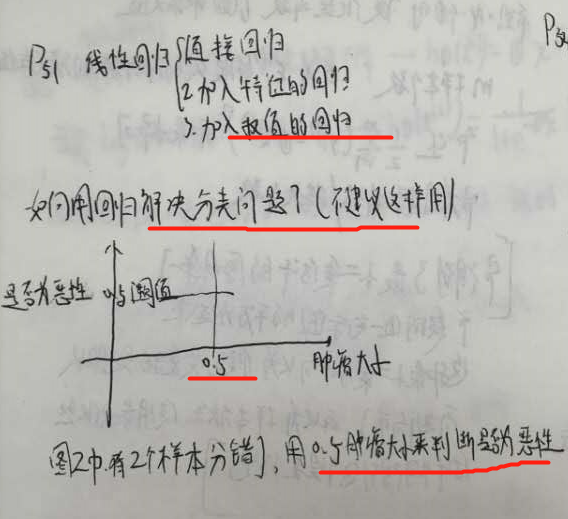 P51 线性回归 1.直接回归
2.加入特征的回归
3.加入权值的回归
如何用回归解决分类问题?(不建议这样用)
是否为恶性 0.5 阈值
0.5 肿瘤大小
图2中有2个样本分错了,用0.5肿瘤大小来判断是否为恶性